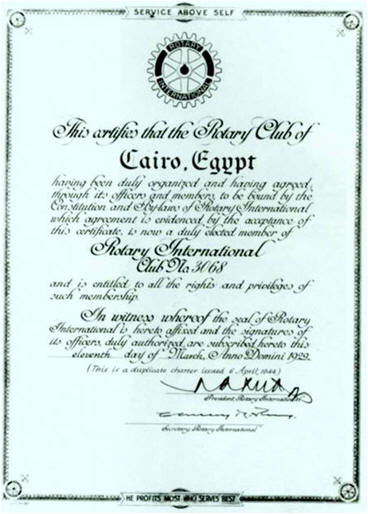 SERVICE ABOVE SELF
ROTARY
INTERNATIONAL
This certifies that the Rotary Club of
Cairo, Egypt
having been duly organized and having agreed,
through its officers and members, to be bound by the
Constitution and By-laws of Rotary International
which agreement is evidenced by the acceptance of
this certificate, is now a duly elected member of
Rotary International
Club No. 3068
and is entitled to all the rights and privileges of
such membership.
In witness whereof the seal of Rotary
International is hereto affixed and the signatures of
its officers, duly authorized, are subscribed hereto this
eleventh day of March, Anno Domini 1929.
(This is a duplicate charter issued 6 April, 1944.)
President, Rotary International
Secretary, Rotary International
HE PROFITS MOST WHO SERVES BEST